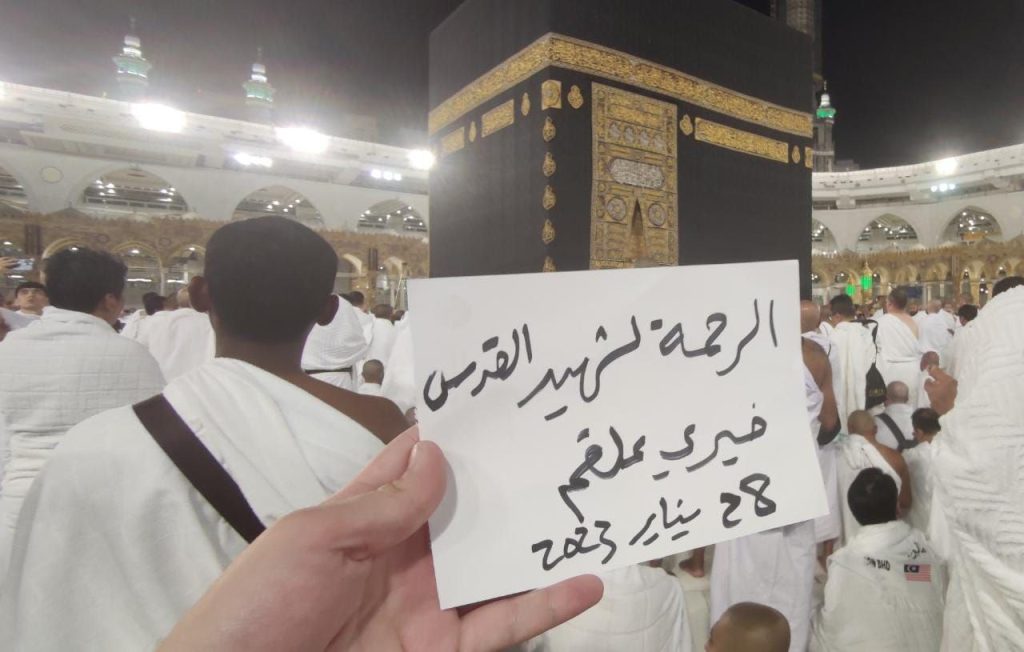 الرحمة لشهيد القدس
خيري علقم
28 يناير 2023
BHD